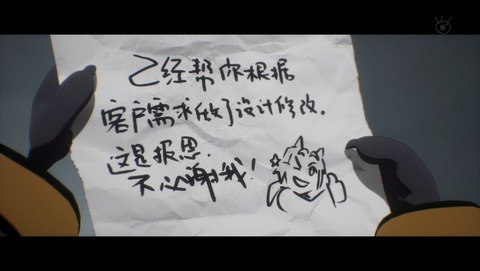 已经帮你根据
客户需求做了设计修改.
这是报恩.
不必谢我!